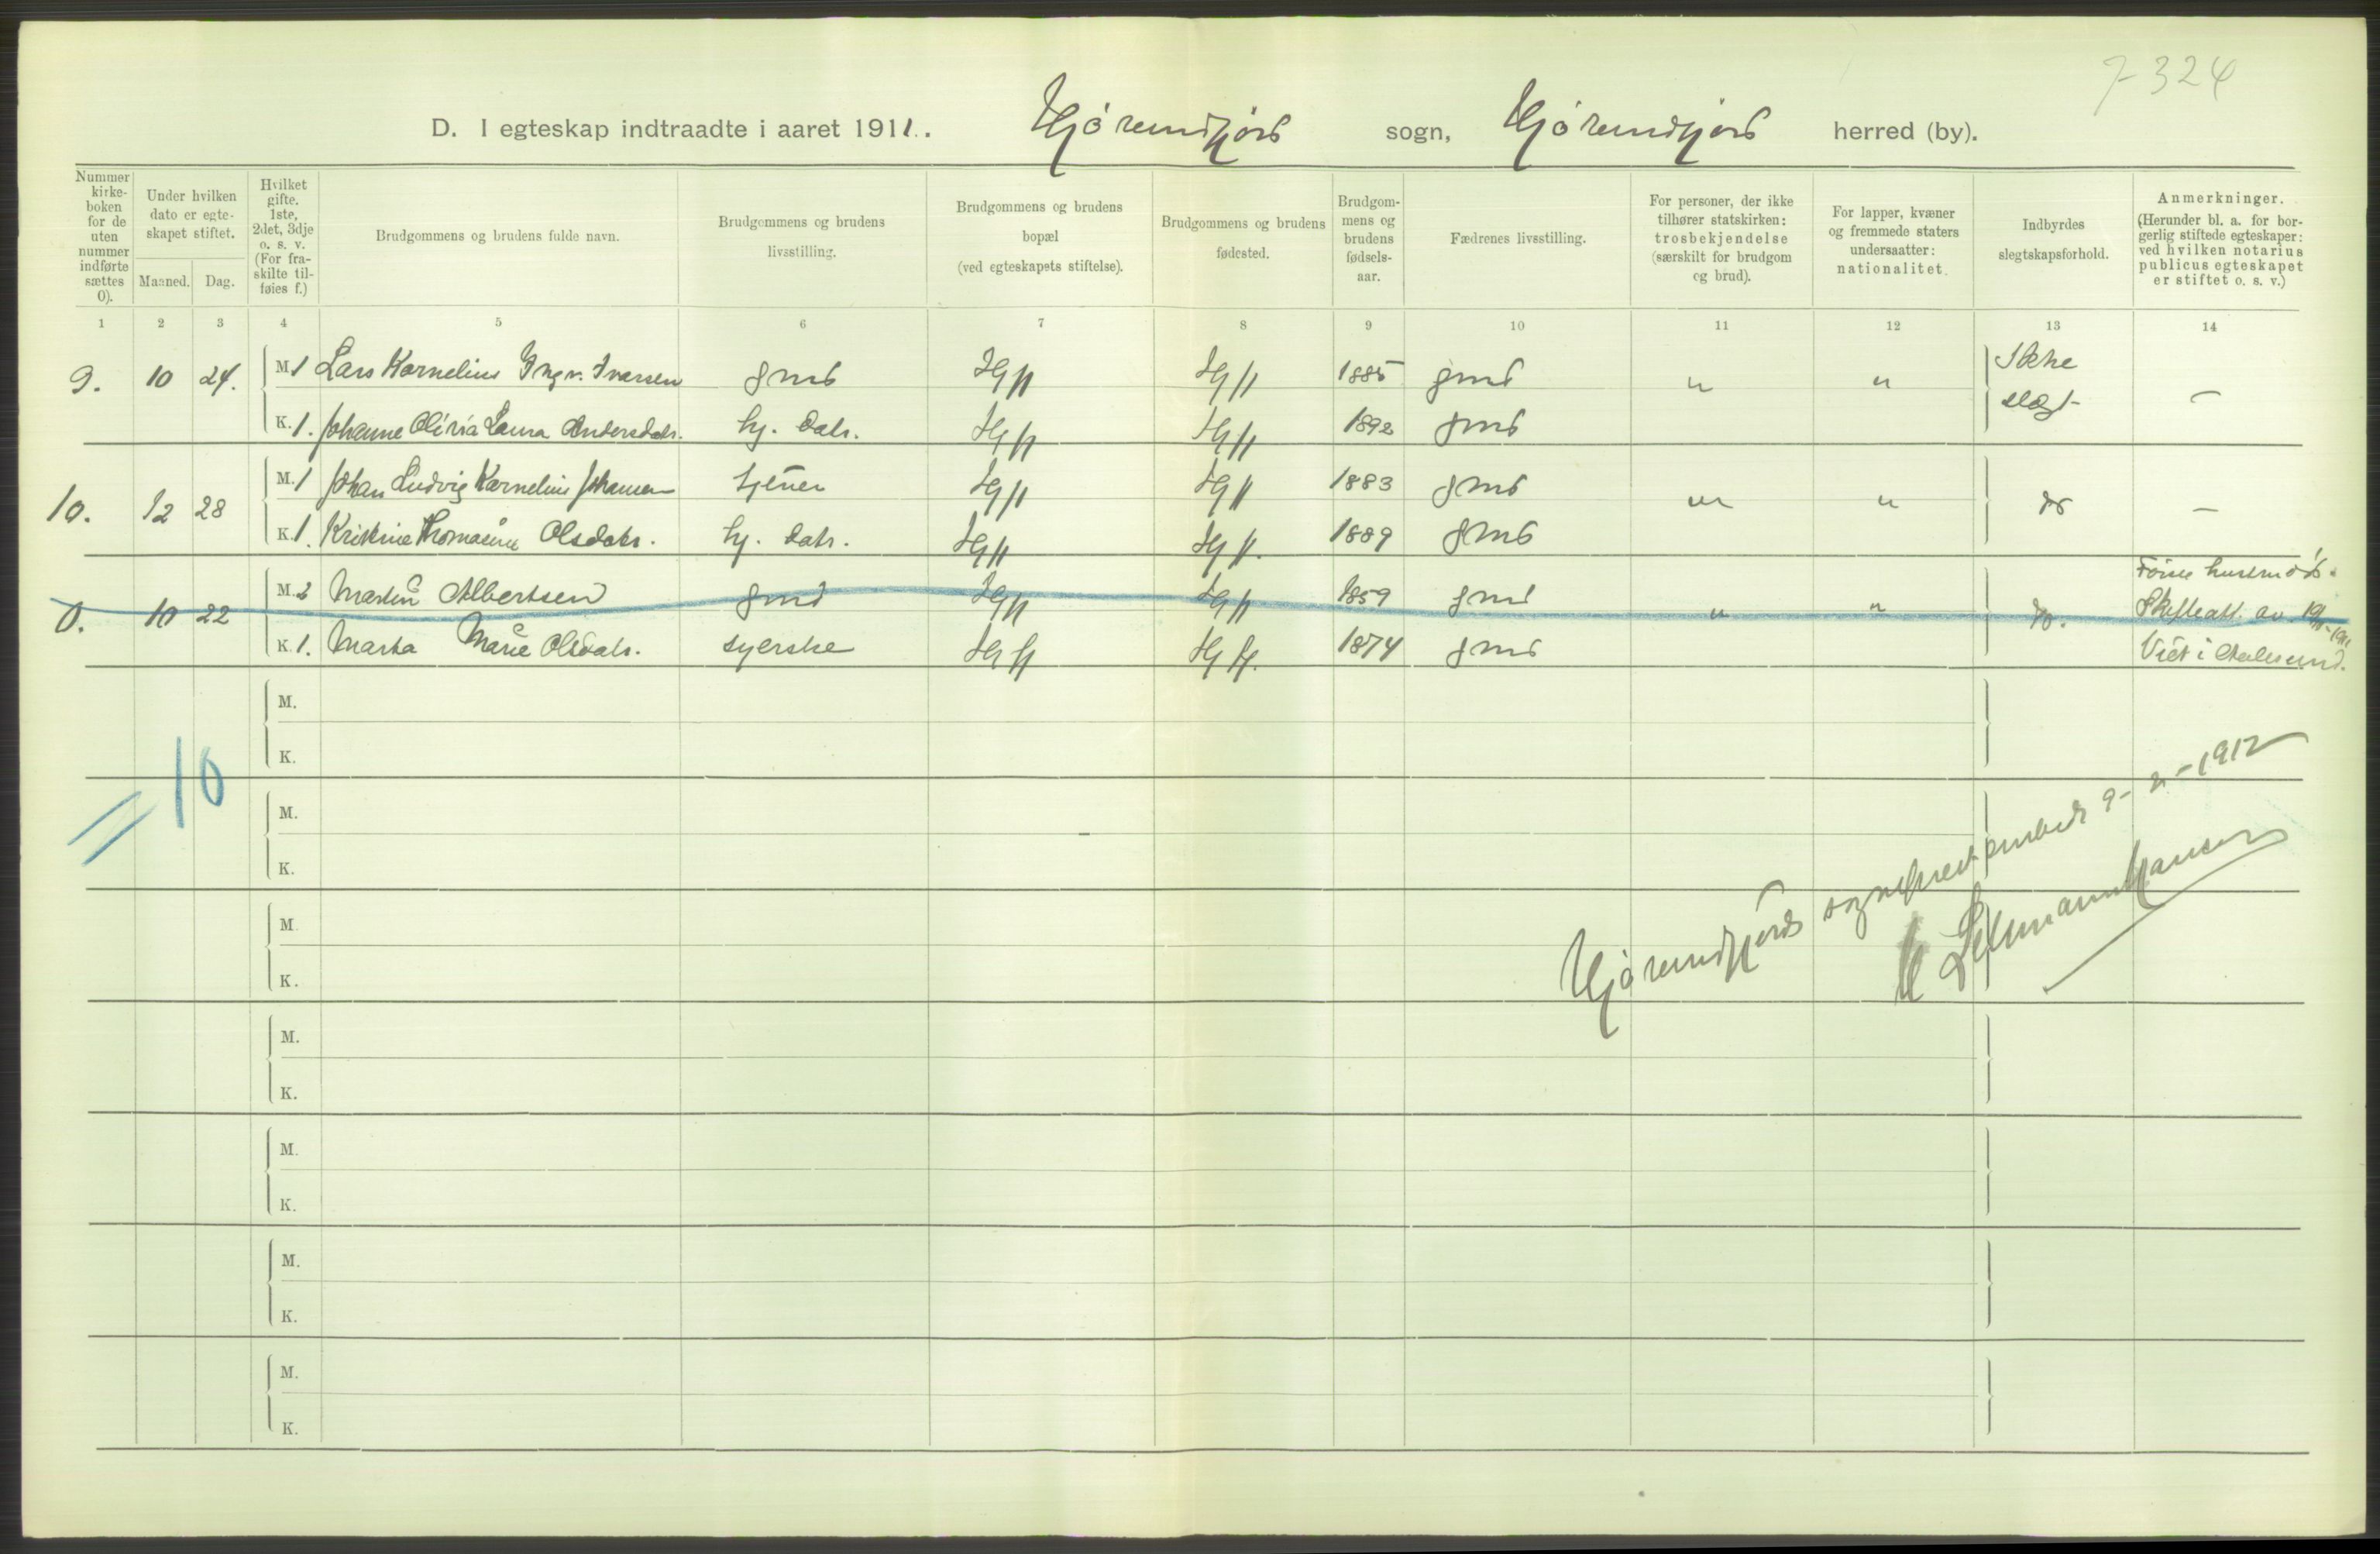 7-324
D. I egteskap indtraadte i aaret 1911. Hjørundfjord sogn, Hjørundfjord herred (by).
Nummer kirke-boken for de uten nummer indførte sættes 0).
Under hvilken dato er egte-skapet stiftet.
Maaned. Dag.
Hvilket gifte. 1ste, 2det, 3dje o. s. v. (For fra-skilte til-føies f.)
Brudgommens og brudens fulde navn.
Brudgommens og brudens livsstilling.
Brudgommens og brudens bopæl (ved egteskapets stiftelse).
Brudgommens og brudens fødested.
Brudgom-mens og brudens fødsels-aar.
Fædrenes livsstilling.
For personer, der ikke tilhører statskirken: trosbekjendelse (særskilt for brudgom og brud).
For lapper, kvæner og fremmede staters undersaatter: nationalitet.
Indbyrdes slegtskapsforhold.
Anmerkninger. (Herunder bl. a. for bor-gerlig stiftede egteskaper: ved hvilken notarius publicus egteskapet er stiftet o. s. v.)
1 2 3 4 5 6 7 8 9 10 11 12 13 14
9. 10 24. M. 1 Lars Kornelius Ingv. Iversen gmd Hjfj Hjfj 1885 gmd " " Ikke slegt –
K. 1. Johanne Olivia Laura Andersdatr. hj. datr. Hjfj Hjfj 1892 gmd
10. 12 28 M. 1 Johan Ludvig Kornelius Johansen tjener Hjfj Hjfj 1883 gmd " " do –
K. 1. Kristine Thomasine Olsdatr. hj. datr. Hjfj Hjfj. 1889 gmd
0. 10 22 M. 2 Martin Albertsen gmd Hjfj Hjfj 1859 gmd " " do. Første hustru død.
Skifteatt. av
K. 1. Marta Marie Olsdatr. syerske Hjfj Hjfj. 1874 gmd Viet i Aalesund.
M.
K.
= 10
M.
K.
Hjørundfjords sogneprestembede 9-2-1912
Lehmann Hansen
M.
K.
M.
K.
M.
K.
M.
K.
M.
K.